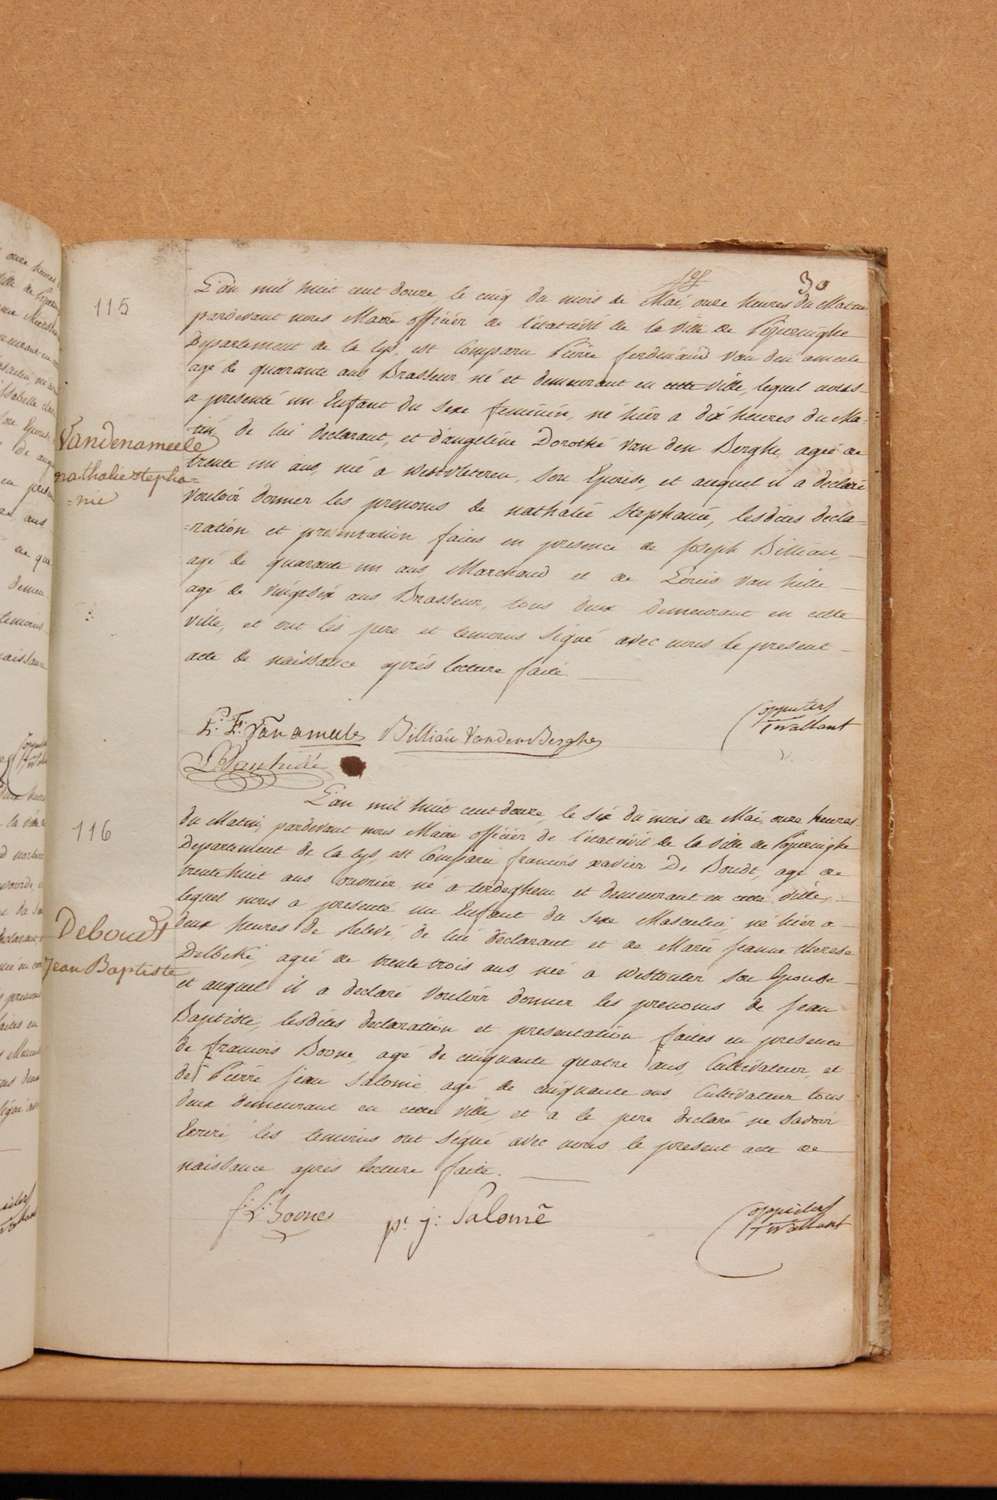 30
115
L'an mil huit cent douze, le cinq du mois de Mai, onze heures du Matin
pardevant nous Maire officier de l'état civil de la ville de Poperinghe
Departement de la Lys, est Comparu Pierre ferdinand Van den ameele
agé de quarante ans Brasseur né et demeurant en cette ville, lequel nous
a presenté un Enfant du sexe feminin, né hier a dix heures du Ma-
-tin, de lui declarant, et d'angeline Dorothé Van den Berghe, agée de
trente un ans, née a Westvleteren, son Epouse, et auquel il a declaré
Vouloir donner les prenoms de nathalie Stephanie, lesdites decla-
-ration et presentation faites en presence de Joseph Billiau,
agé de quarante un ans Marchand et de Louis Van hille
agé de vingt six ans Brasseur, tous deux demeurant en cette
ville, et ont les pere et temoins signé avec nous le present
acte de naissance après lecture faite
Vandenameele
nathalie stepha=
=nie
P: F: Van ameele Billiau VandenBerghe
116
L'an mil huit cent douze, le six du mois de Mai, onze heures
du Matin, pardevant nous Maire officier de l'état civil de la ville de Poperinghe
Departement de la Lys, est Comparu francois xavier De Boudt, agé de
trente huit ans ouvrier né a terdeghem et demeurant en cette ville,
lequel nous a presenté un Enfant du sexe Masculin, né hier a
deux heures de relevé, de lui declarant et de Marie Jeanne therese
Delbeke, agée de trente trois ans née a Westouter son Epouse
et auquel il a declaré Vouloir donner les prenoms de Jean
Baptiste, lesdites declaration et presentation faites en presence
de francois Boone, agé de cinquante quatre ans, Cultivateur, et
de Pierre Jean Salomé agé de cinquante ans Cultivateur tous
deux demeurant en cette ville, et a le pere declaré ne Savoir
Ecrire les temoins ont signé avec nous le present acte de
naissance après lecture faite.
Deboudt
Jean Baptiste
f: L: Boone pr j: Salomé